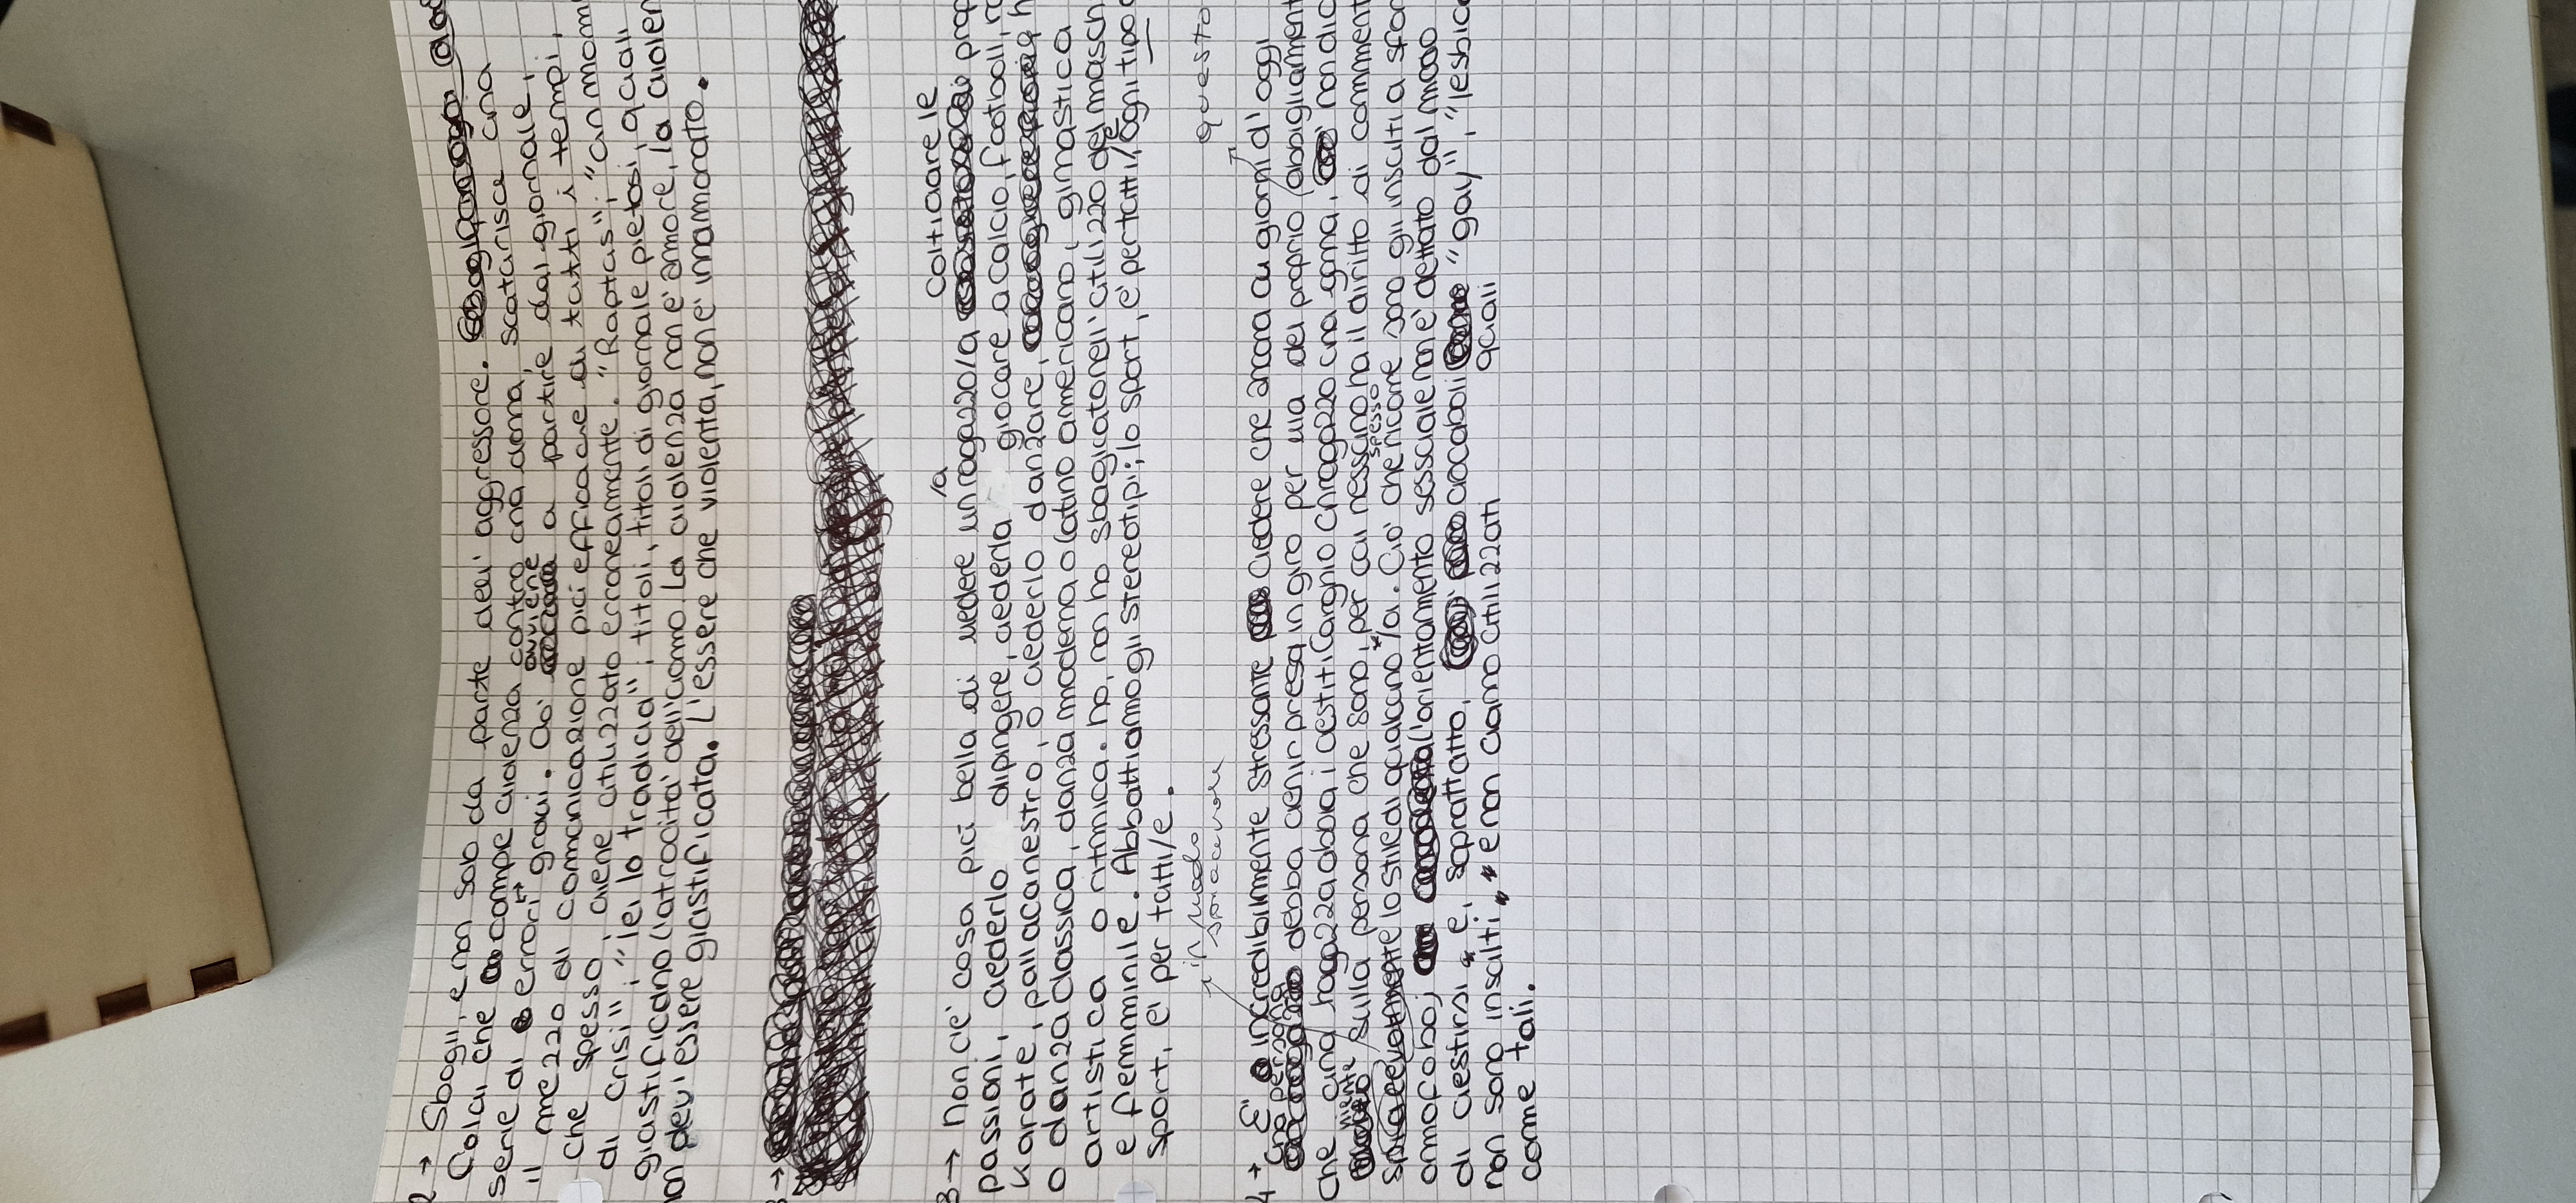 2→ Sbagli, e non solo da parte dell' aggressore.
Colui che compe violenza contro una donna, scaturisce una
serie di errori gravi. Ciò avviene a partire dal giornale,
il mezzo di comunicazione più efficace di tutti i tempi,
che spesso, viene utilizzato erroneamente. "Raptus"; "un mom
di crisi"; "lei lo tradiva"; titoli, titoli di giornale pietosi, quali
giustificano l'atrocità dell'uomo. La violenza non è amore, la violen
non può essere giustificata. L'essere che violenta, non è innamorato.
3→
3→ Non c'è cosa più bella di vedere un ragazzo/a coltivare le prop
/a
passioni, vederlo dipingere, vederla giocare a calcio, football, r
karate, pallacanestro, o vederlo danzare, h
o danza classica, danza moderna o latino americano, ginnastica
artistica o ritmica. No, non ho sbagliato nell'utilizzo del masch
e femminile. Abbattiamo gli stereotipi; lo sport, è per tutti/e, ogni tipo
sport, è per tutti/e.
in modo
spiacevole
questo
4→ E' incredibilmente stressante vedere che ancora ai giorni d'oggi
una persona debba venir presa in giro per via del proprio abbigliament
che una ragazza abbia i vestiti larghi o un ragazzo una gonna, non dic
niente sulla persona che sono, per cui nessuno ha il diritto di comment
spiacevolmente lo stile di qualcuno*/a. Ciò che ricade spesso sono gli insulti a sfon
omofobo; l'orientamento sessuale non è dettato dal modo
di vestirsi " e, soprattutto, vocaboli quali "gay", "lesbica
non sono insulti " " e non vanno utilizzati
come tali.